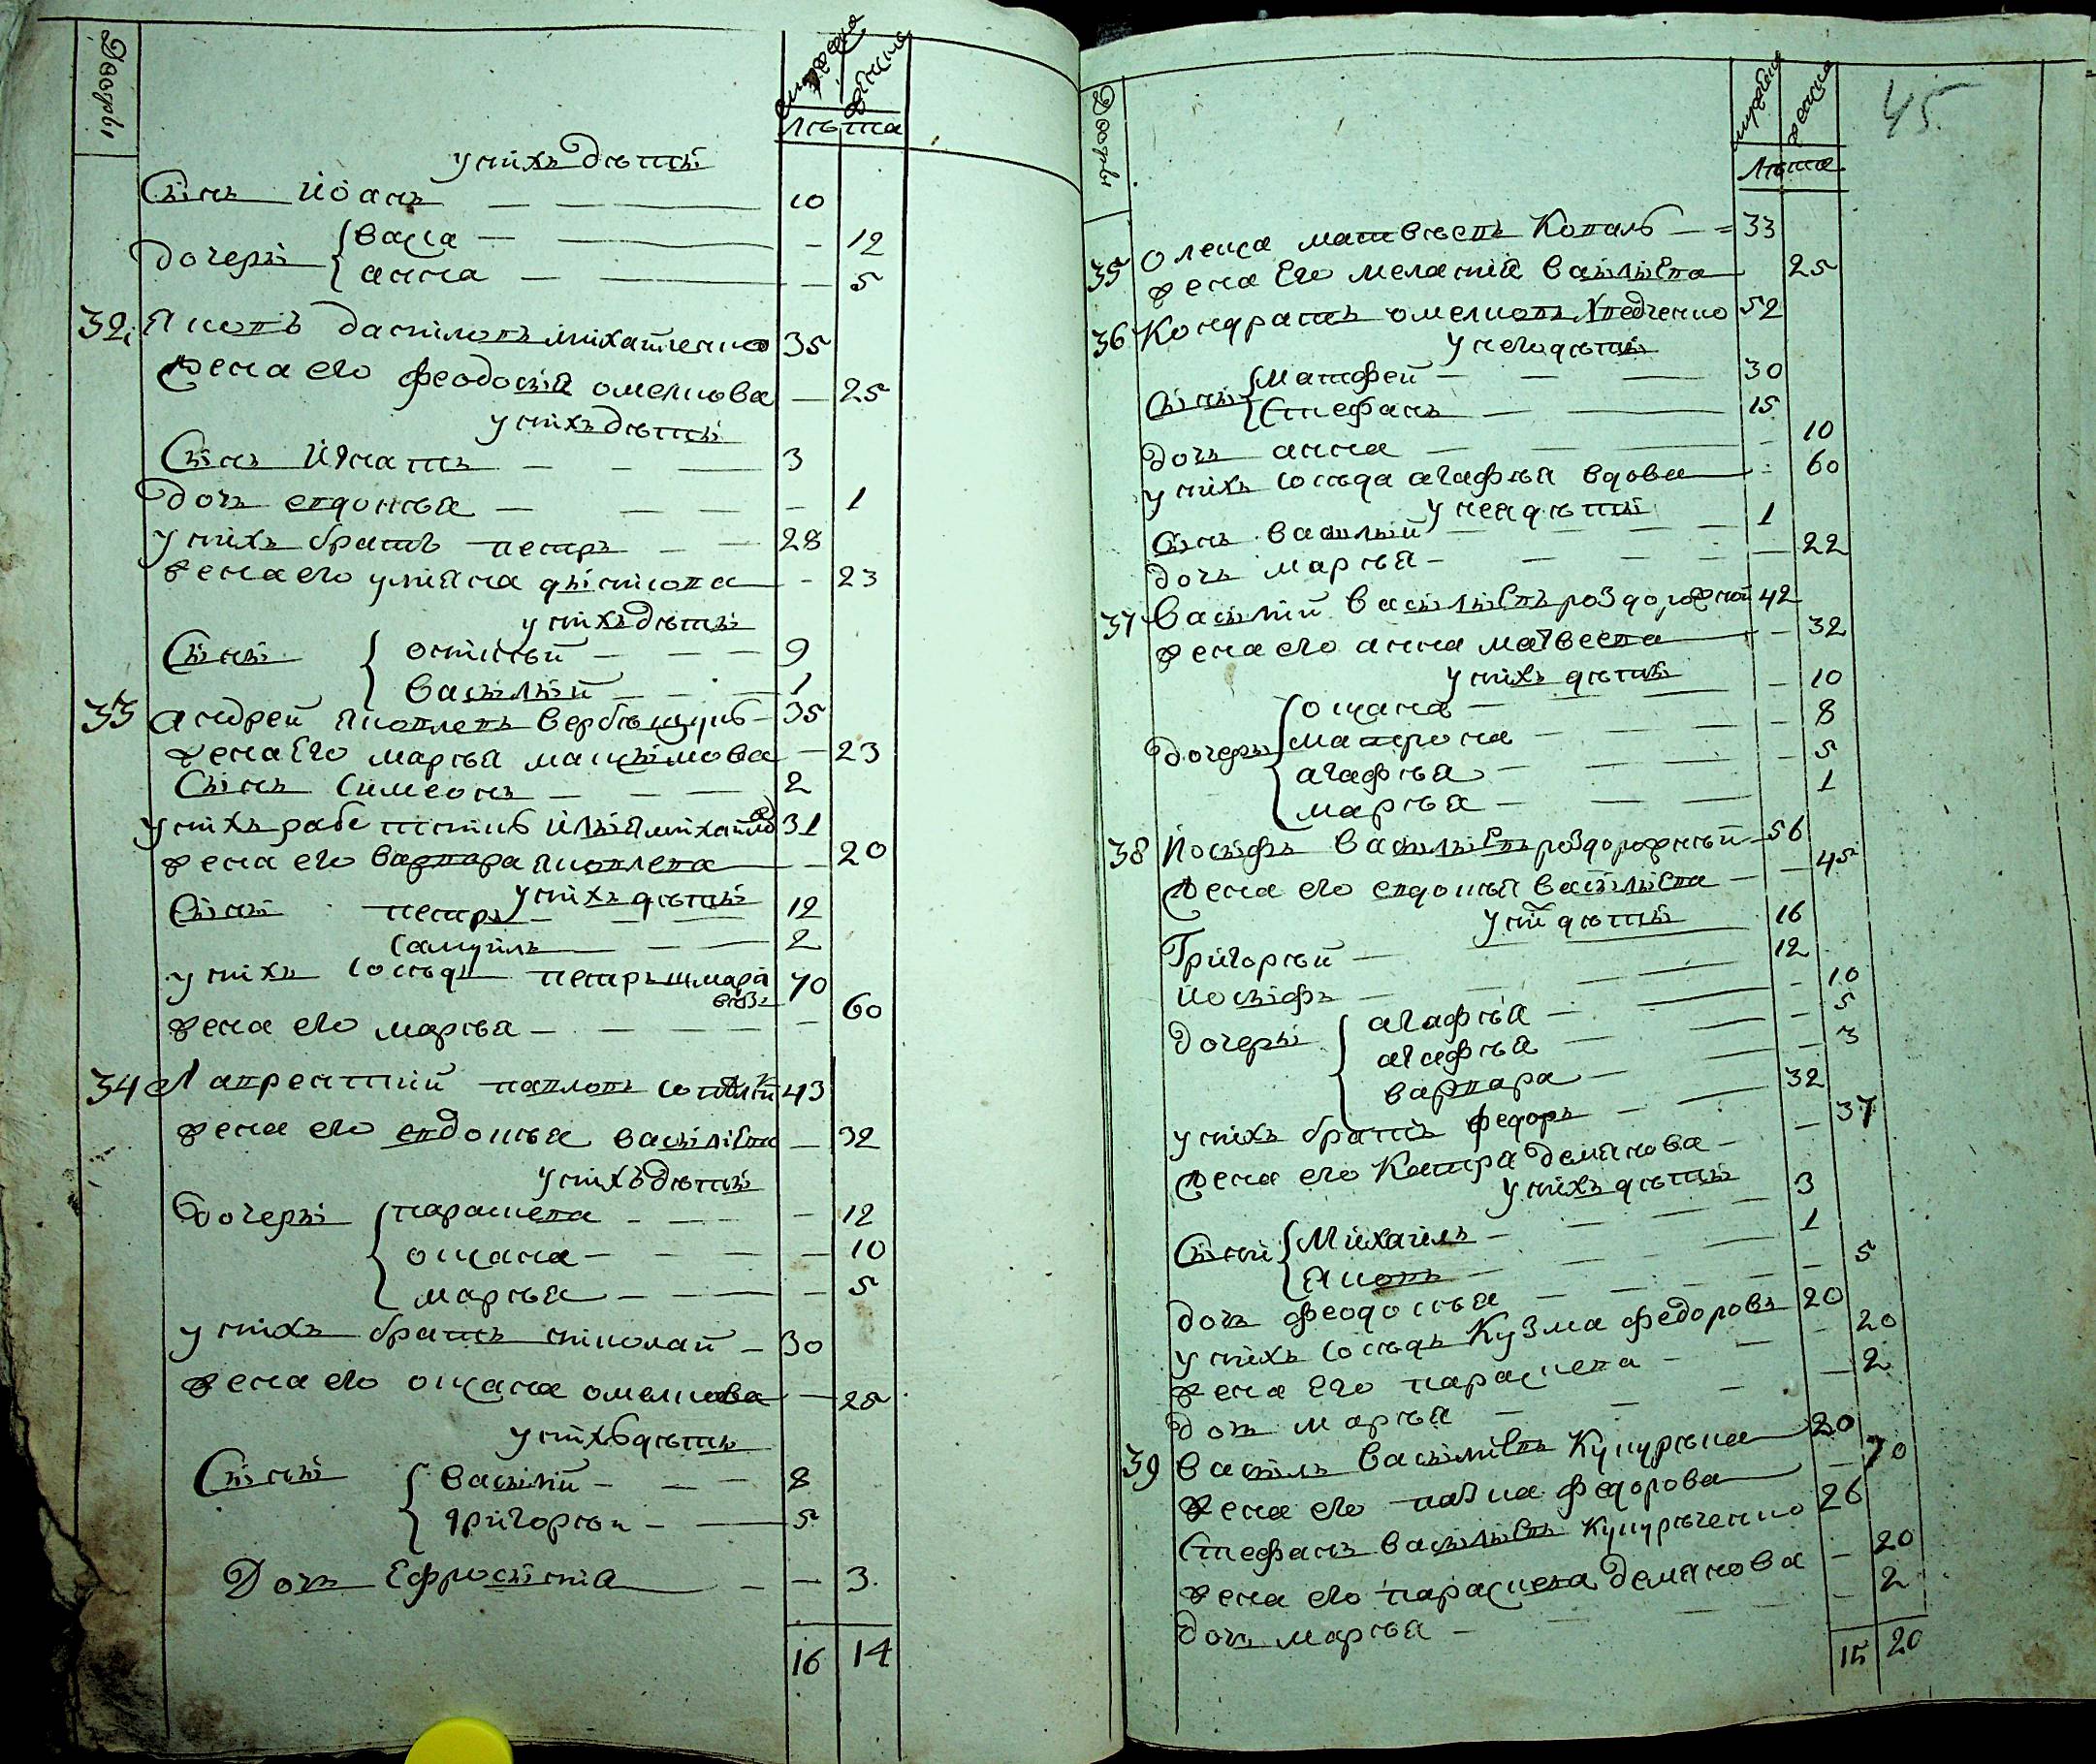 Дворы
мужеска
женска
Лѣта
у нихъ дѣти
Синъ Йоанъ — 10
дочери { васса — 12
анна — 5
32 Яковъ даниловъ михайленко 35
жена его феодосия омелкова — 25
у нихъ дѣти
Синъ Игнатъ — 3
дочь евдокия — 1
у нихъ братъ петръ — 28
жена его улияна
у нихъ дѣти
Сини { — 9
василий — 1
33 андрей яковлевъ — 35
жена его мария максимова — 23
Синъ Симеонъ — 2
у нихъ илия 31
жена его варвара яковлева — 20
у нихъ дѣти
Сини петръ — 12
Самуилъ — 2
у нихъ сосѣдъ петръ 70
жена его мария — 60
34 Лаврентий павловъ 43
жена его евдокия василиева — 32
у нихъ дѣти
Дочери { параскева — 12
оксана — 10
мария — 5
у нихъ братъ николай — 30
жена его оксана омелкова — 25
у нихъ дѣти
Сини { василий — 8
григорий — 5
Дочь Ефросиния — 3
16 14
45
Дворы
мужеска
женска
Лѣта
35 Олекса матвѣевъ Коваль — 33
жена Его мелания василиева 25
36 Кондратъ омелковъ 52
у него дѣти
Сини { Матфей — 30
Стефанъ — 15
дочь анна — 10
у нихъ сосѣда агафия вдова — 60
у нея дѣти
Синъ василий — 1
дочь мария — 22
37 Василий василиевъ роздорожной 42
жена его анна матвеева — 32
у нихъ дѣти
дочери { оксана — 10
матрона — 8
агафия — 5
мария — 1
38 Йосифъ василиевъ роздорожний 56
жена его евдокия василиева — 45
у них дѣти
Григорий — 16
йосифъ — 12
дочери { агафия — 10
агафия — 5
варвара — 3
у нихъ братъ федоръ — 32
жена его демянова — 37
у нихъ дѣти
Сини { Михаилъ — 3
Яковъ — 1
дочь феодосия — 5
у нихъ сосѣдъ Кузма федоровъ 20
жена Его параскева — 20
дочь мария — 2
39 василь василиевъ 20
жена его федорова — 70
Стефанъ василиевъ 26
жена его параскева демянова — 20
дочь мария — 2
15 20